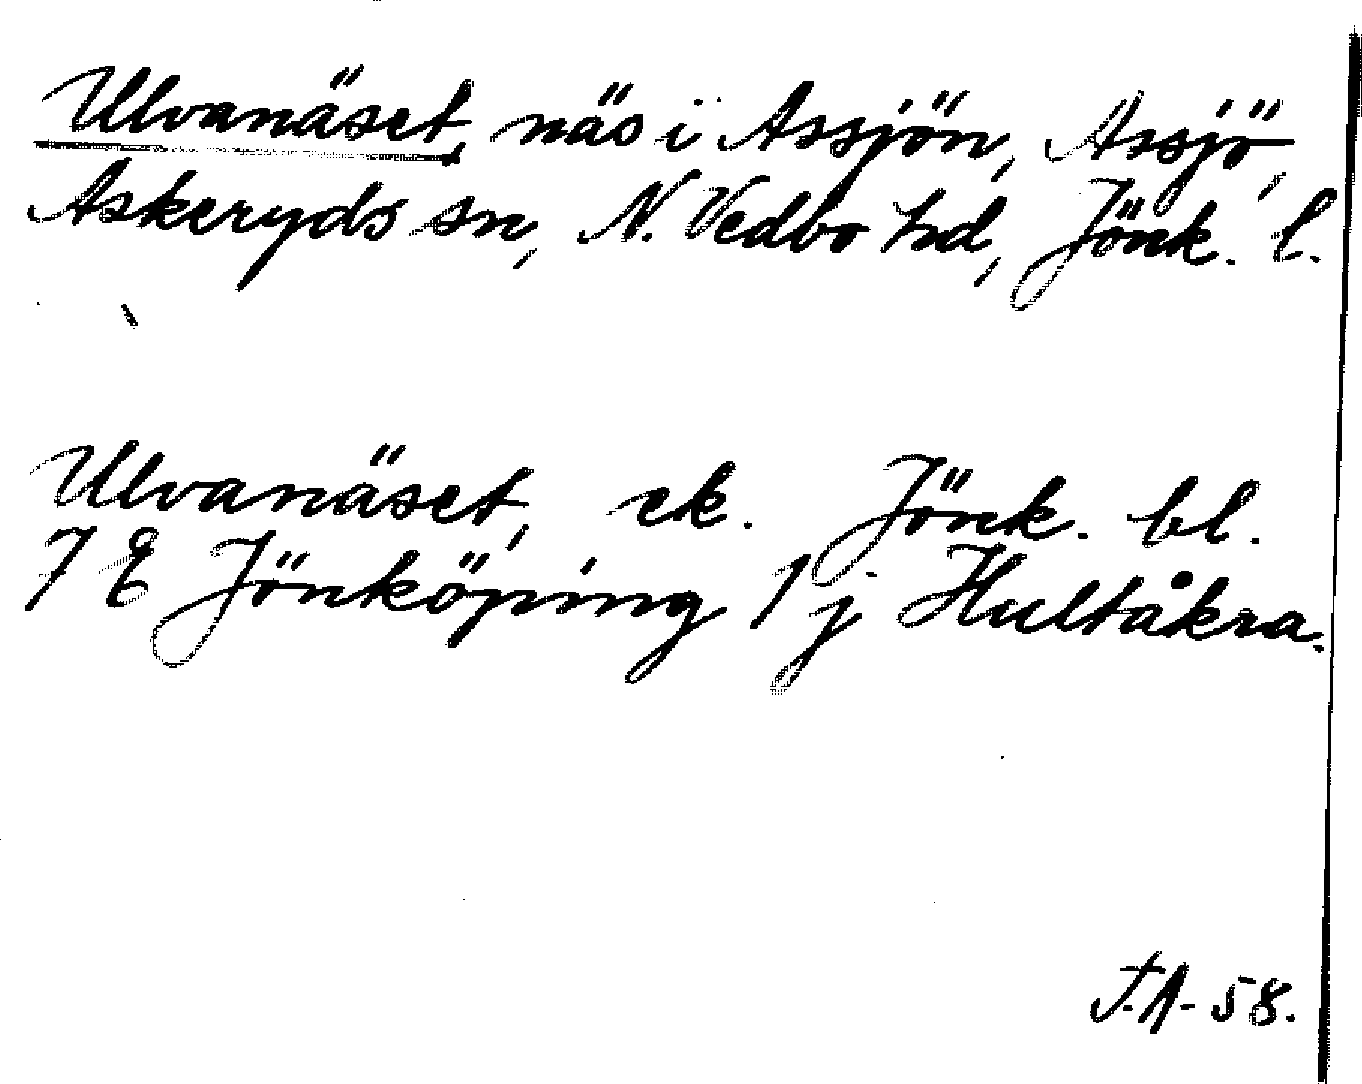 Ulvanäset, näs i Assjön, Assjö,
Askeryds sn, N. Vedbo hd, Jönk. l.
Ulvanäset, ek. Jönk. bl.
7 E Jönköping 1 j Hultåkra.
J.A- 58.